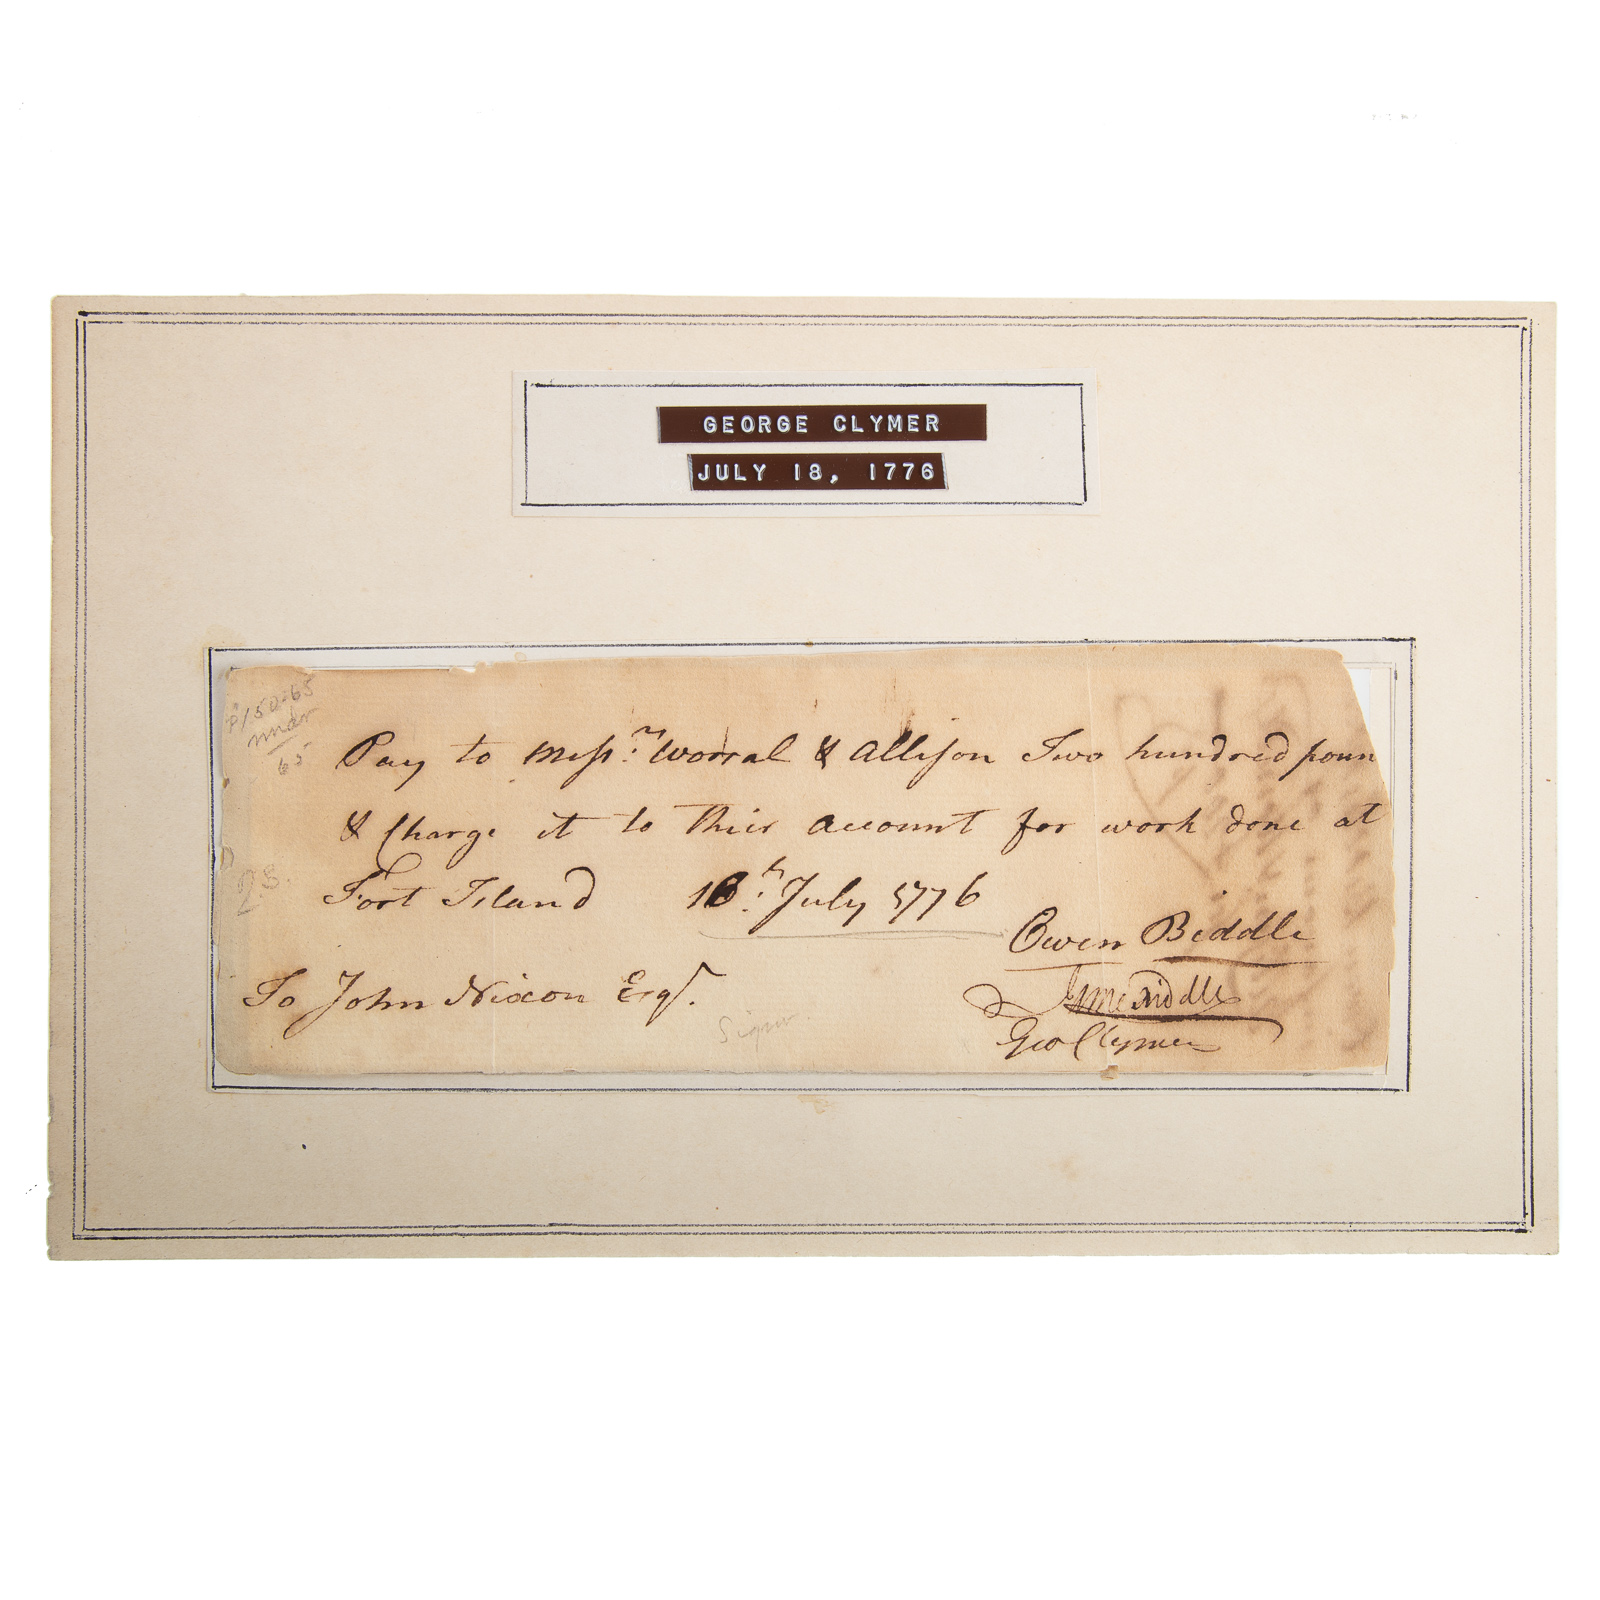 GEORGE CLYMER
JULY 18, 1776
P150-65
under
65
Pay to Messrs. Worral & Allison Two hundred poun
& Charge it to thier account for work done at
Fort Island 18th. July 1776
Owen Biddle
To John Nixon Esqr.
Geo Clymer
Signer.